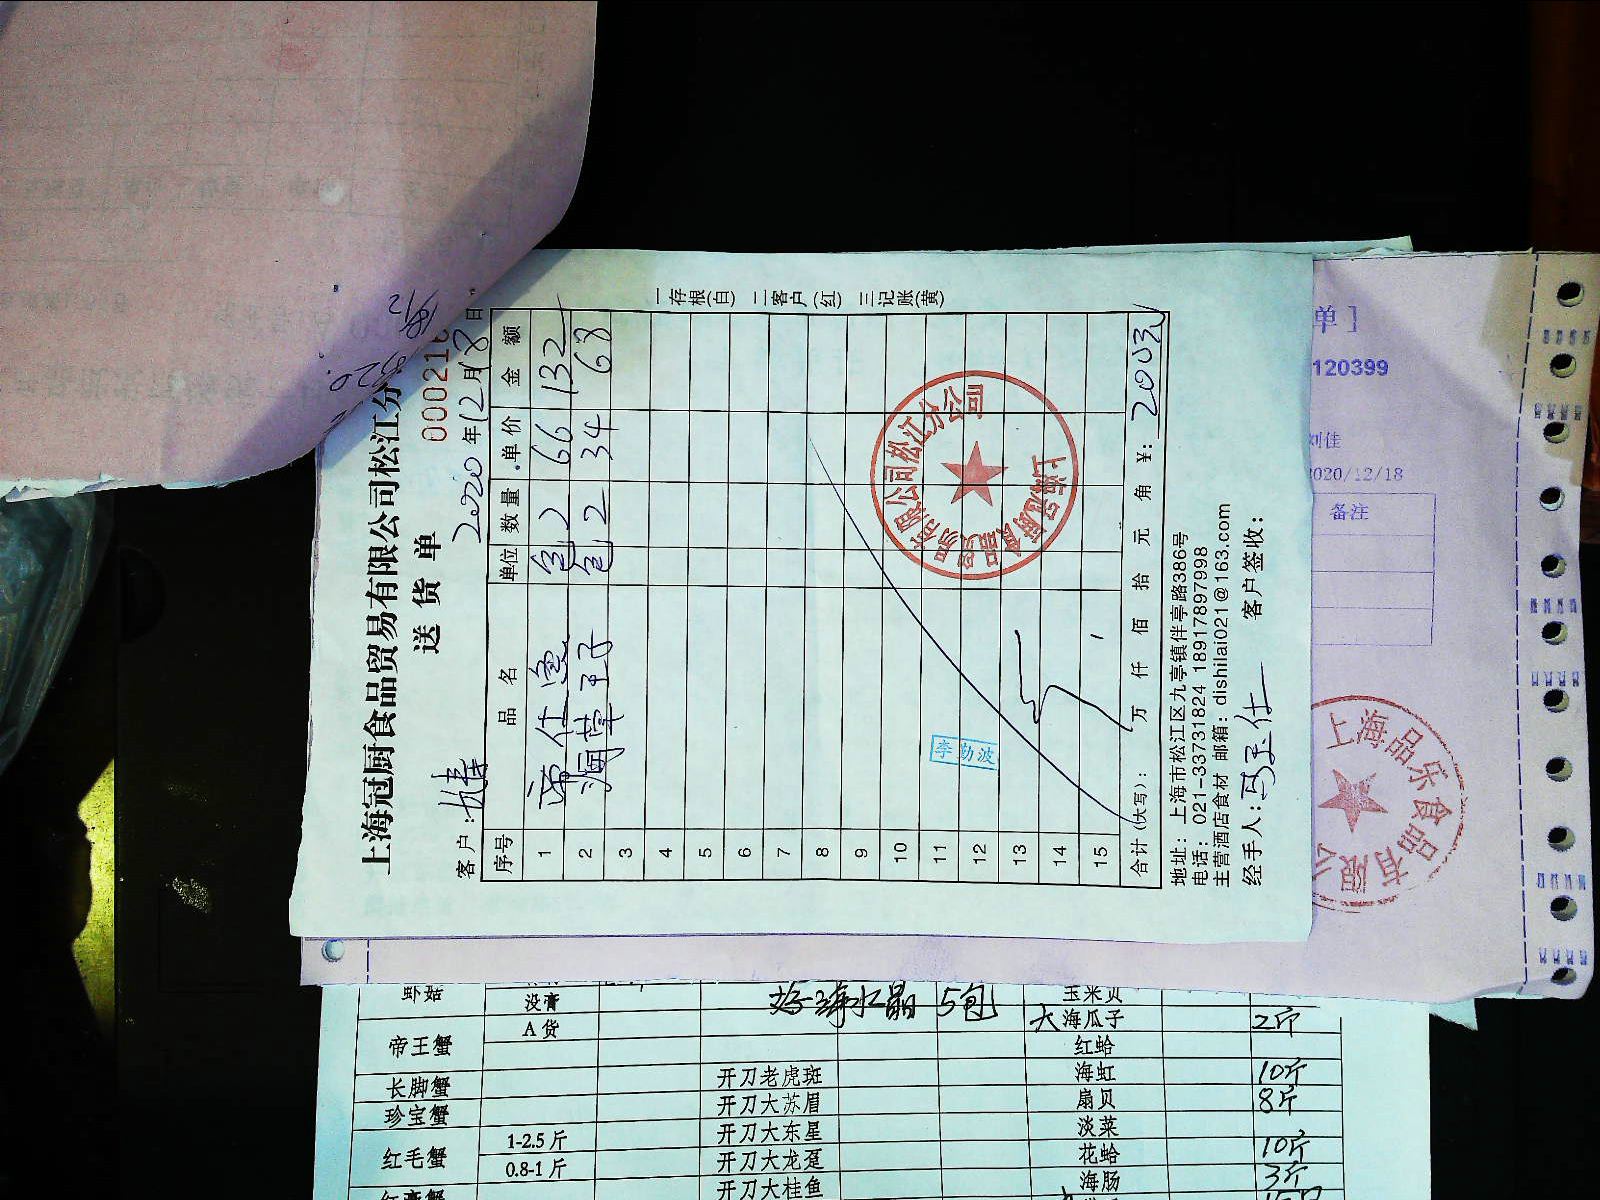 上海冠厨食品贸易有限公司松江分
送货单
000216
客户:
2020年12月18日
序号 品名 单位 数量 单价 金额
1 帝仕鱼 包 2 66 132
2 包 2 34 68
3
4
5
6
7
8
9
10
11
12
13
14
15
合计(大写): 万 仟 佰 拾 元 角 ¥: 200元
一存根(白) 二客户(红) 三记账(黄)
地址: 上海市松江区九亭镇伴亭路386号
电话: 021-33731824 18917897998
主营酒店食材 邮箱: dishilai021@163.com
经手人: 客户签收:
李勤波
上海冠厨食品贸易有限公司松江分公司
单]
120399
刘佳
2020/12/18
备注
上海品乐食品有限公
虾姑 没膏 5包 玉米贝
帝王蟹 A货 大海瓜子 2斤
红蛤
长脚蟹 开刀老虎斑 海虹 10斤
珍宝蟹 开刀大苏眉 扇贝 8斤
红毛蟹 1-2.5斤 开刀大东星 淡菜
0.8-1斤 开刀大龙趸 花蛤 10斤
开刀大桂鱼 海肠 3斤